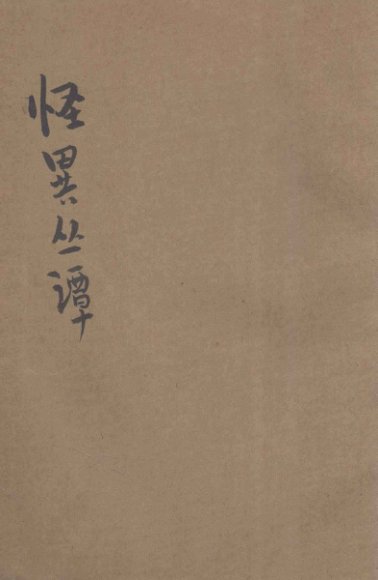 怪異丛谭